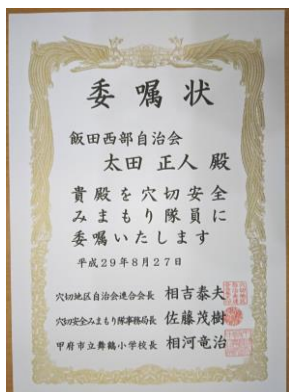 委嘱状
飯田西部自治会
太田 正人 殿
貴殿を穴切安全
みまもり隊員に
委嘱いたします
平成29年8月27日
穴切地区自治会連合会長 相吉泰夫
穴切安全みまもり隊事務局長 佐藤茂樹
甲府市立舞鶴小学校長 相河竜治